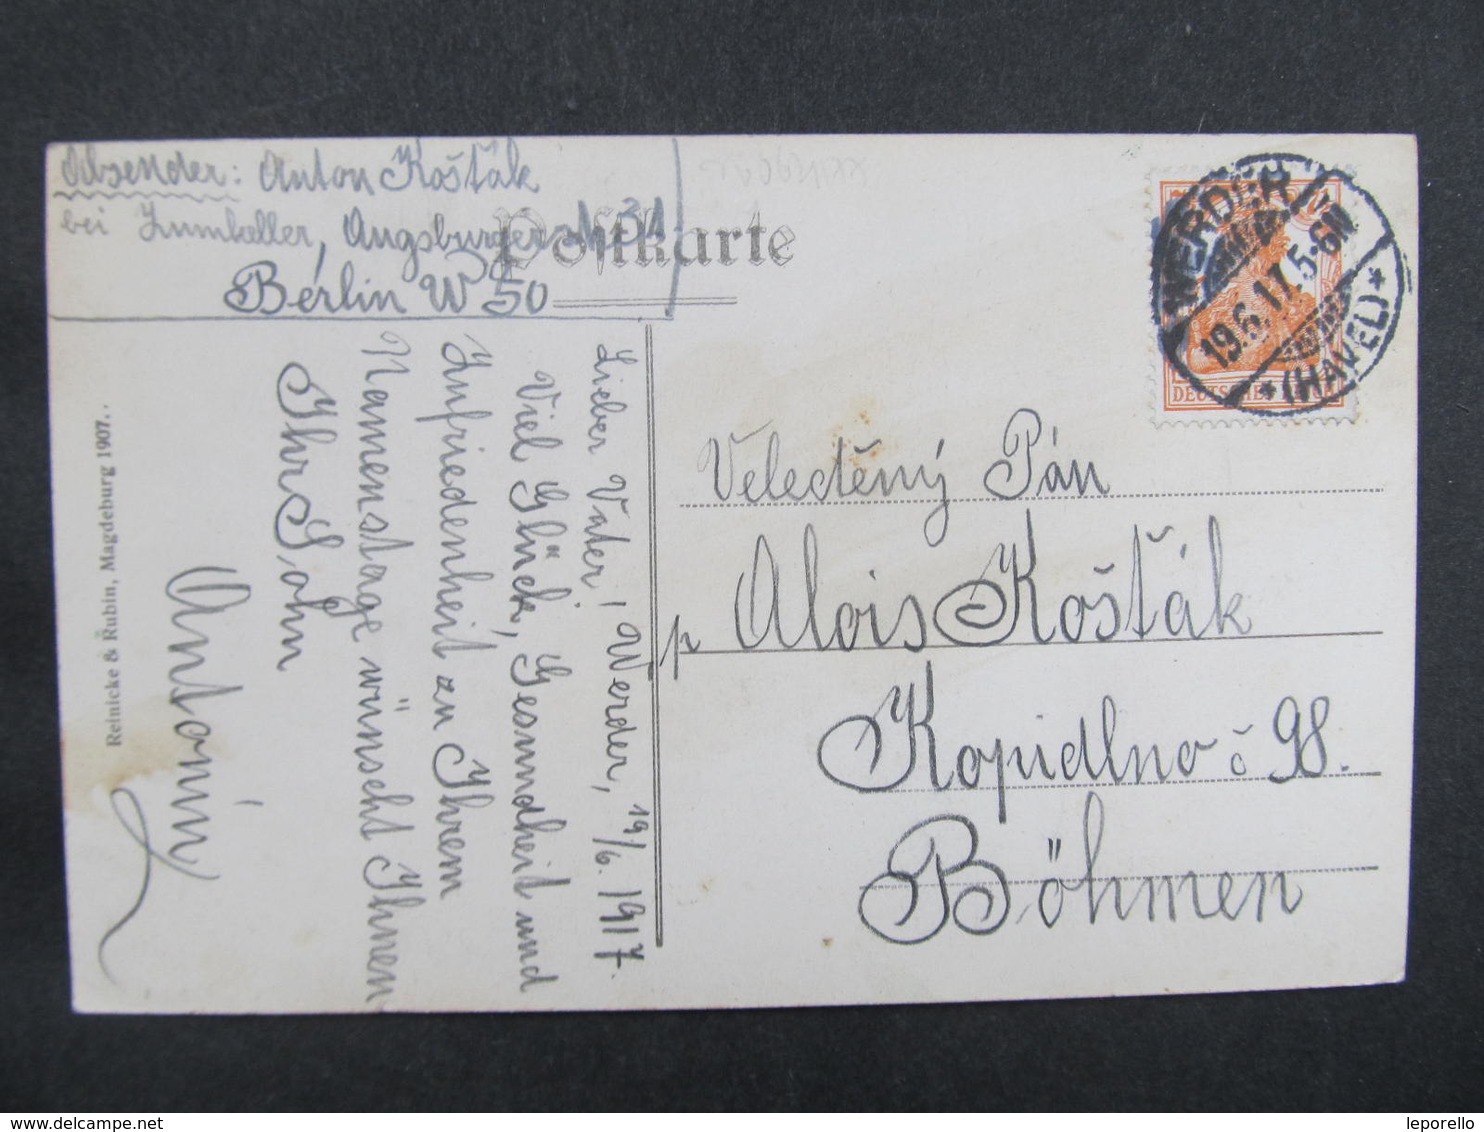 Absender: Anton Košťák
bei Zumkeller, Augsburger 31
Berlin W 50
Postkarte
WERDER
19.6.17. 5-6N
* (HAVEL) *
DEUTSCHES
Lieber Vater! Werder, 19/6. 1917.
Viel Glück, Gesundheit und
Zufriedenheit zu Ihrem
Namenstage wünscht Ihnen
Ihr Sohn
Antonín
Reinicke & Rubin, Magdeburg 1907.
Velectěný Pán
p Alois Košťák
Kopidlno č 98.
Böhmen
leporello
delcampe.net